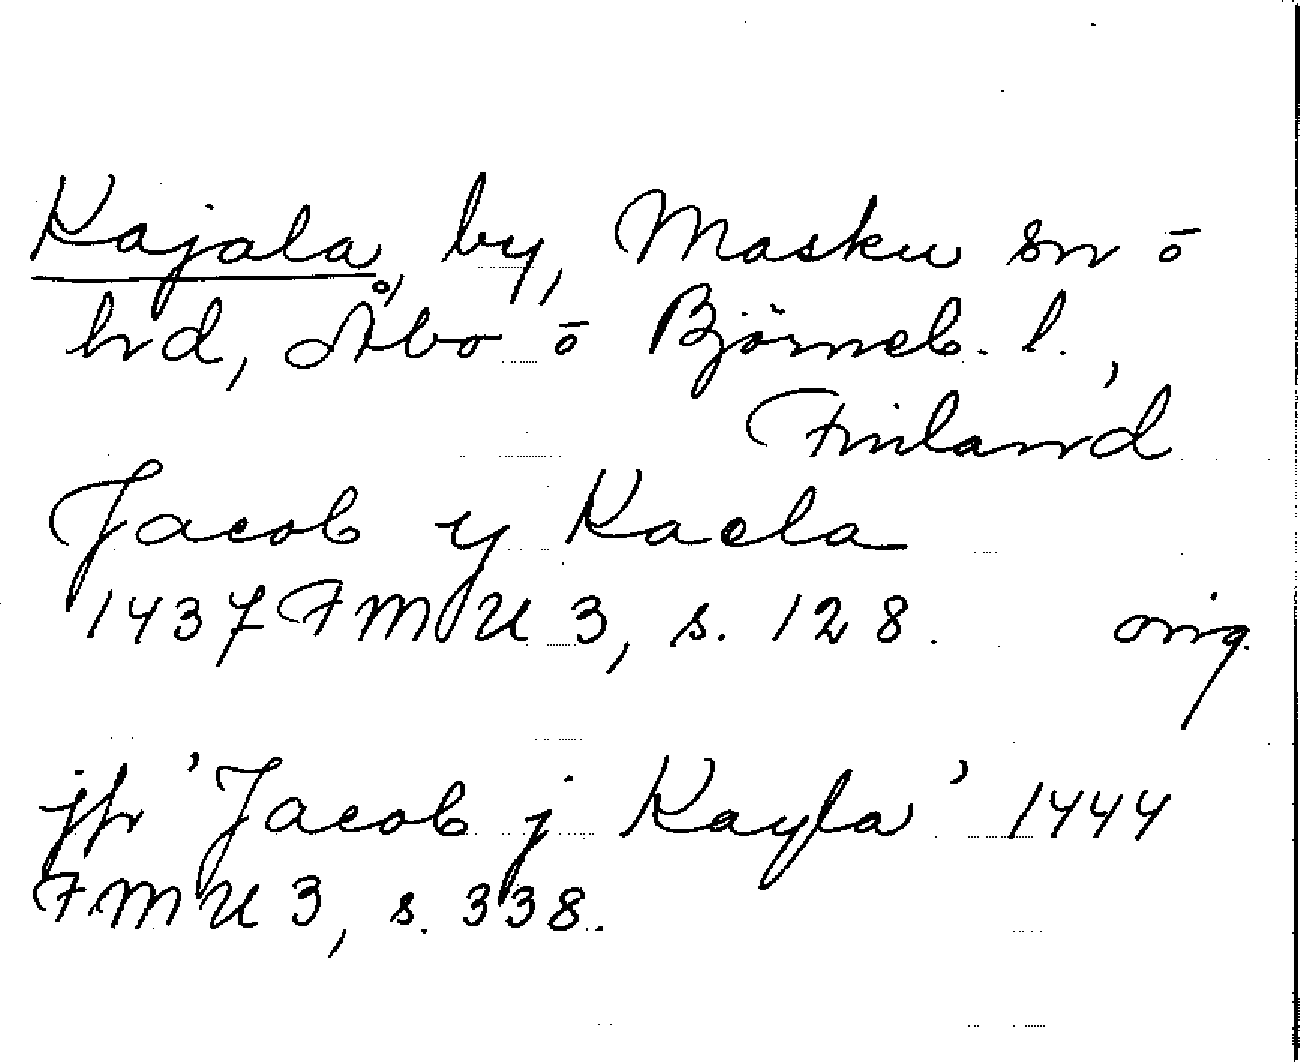 Kajala, by, Masku sn ō
hd, Åbo ō Björneb. l.,
Finland
Jacob y Kaela
1437 FMU 3, s. 128. orig.
jfr 'Jacob j Kayla' 1444
FMU 3, s. 338.